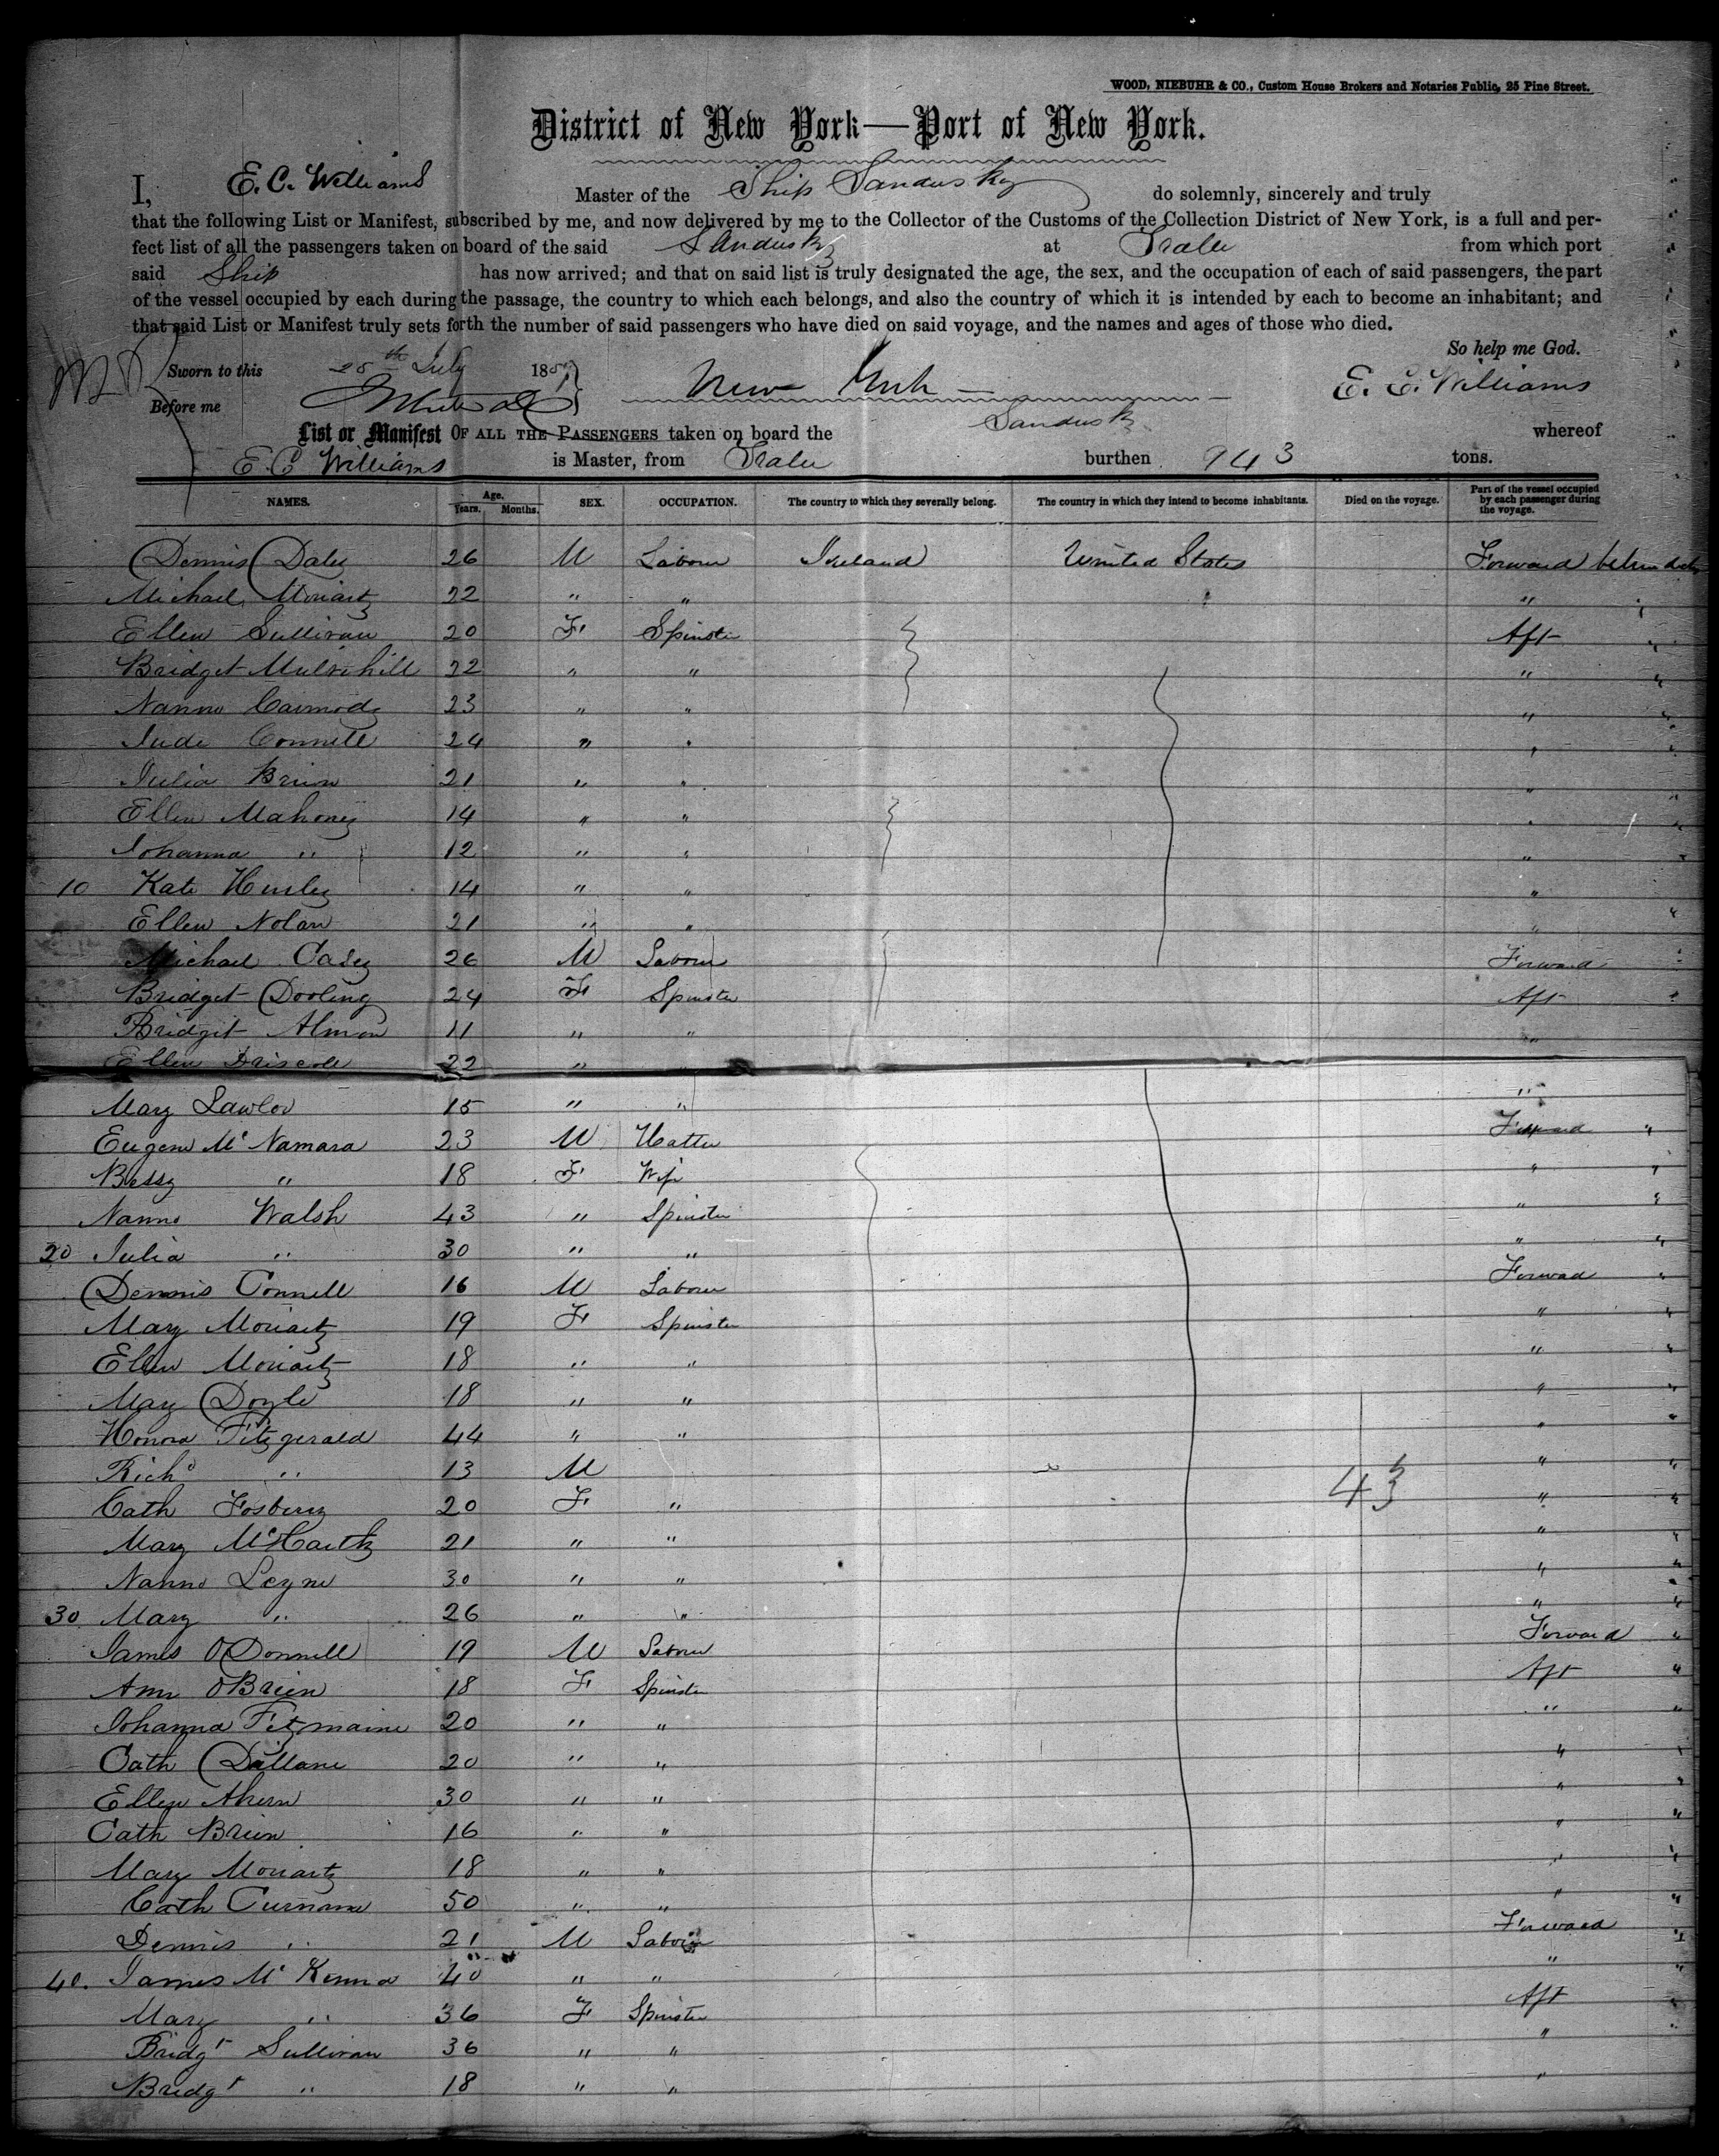 WOOD, NIEBUHR & CO., Custom House Brokers and Notaries Public, 25 Pine Street.
District of New York—Port of New York.
I, E. C. Williams Master of the Ship Sandusky do solemnly, sincerely and truly
that the following List or Manifest, subscribed by me, and now delivered by me to the Collector of the Customs of the Collection District of New York, is a full and per-
fect list of all the passengers taken on board of the said Sandusky at Tralee from which port
said Ship has now arrived; and that on said list is truly designated the age, the sex, and the occupation of each of said passengers, the part
of the vessel occupied by each during the passage, the country to which each belongs, and also the country of which it is intended by each to become an inhabitant; and
that said List or Manifest truly sets forth the number of said passengers who have died on said voyage, and the names and ages of those who died.
So help me God.
Sworn to this 25th July 185 New York E. C. Williams
Before me
List or Manifest OF ALL THE PASSENGERS taken on board the Sandusky whereof
E C Williams is Master, from Tralee burthen 943 tons.
NAMES. Age. Years. Months. SEX. OCCUPATION. The country to which they severally belong. The country in which they intend to become inhabitants. Died on the voyage. Part of the vessel occupied by each passenger during the voyage.
Dennis Daly 26 M Labour Ireland United States Forward
Michael Moriarty 22 " " "
Ellen Sullivan 20 F Spinster Aft "
Bridget Mulvihill 22 " " " "
Nanno Carmody 23 " " " "
Jude Connell 24 " " " "
Julia Brien 21 " " " "
Ellen Mahony 14 " " " "
Johanna " 12 " " " "
10 Kate Hurley 14 " " "
Ellen Nolan 21 " " " "
Michael Casey 26 M Labour Forward "
Bridget Dooling 24 F Spinster Aft "
Bridgit Almon 11 " " "
Ellen Driscole 22 " "
Mary Lawlor 15 " " "
Eugene Mc Namara 23 M Hatter Forward "
Bessy " 18 F Wife " "
Nanno Walsh 43 " Spinster " "
20 Julia " 30 " " " "
Dennis Connell 16 M Labour Forwad "
Mary Moriarty 19 F Spinster " "
Ellen Moriarty 18 " " " "
Mary Doyle 18 " " " "
Honora Fitzgerald 44 " " " "
Richd " 13 M " "
Cath Fosbery 20 F " 43 " "
Mary McCarthy 21 " " " "
Nanno Leyne 30 " " " "
30 Mary " 26 " " " "
James O'Donnell 19 M Labour Forward "
Ann O'Brien 18 F Spinster Aft "
Johanna Fitzmaine 20 " " " "
Cath Dillane 20 " " " "
Ellen Ahern 30 " " " "
Cath Brien 16 " " " "
Mary Moriarty 18 " " " "
Cath Curnane 50 " " " "
Dennis " 21 M Labour Forward "
40. James Mc Kenna 40 " " " "
Mary " 36 F Spinster Aft "
Bridgt Sullivan 36 " " " "
Bridgt " 18 " " "